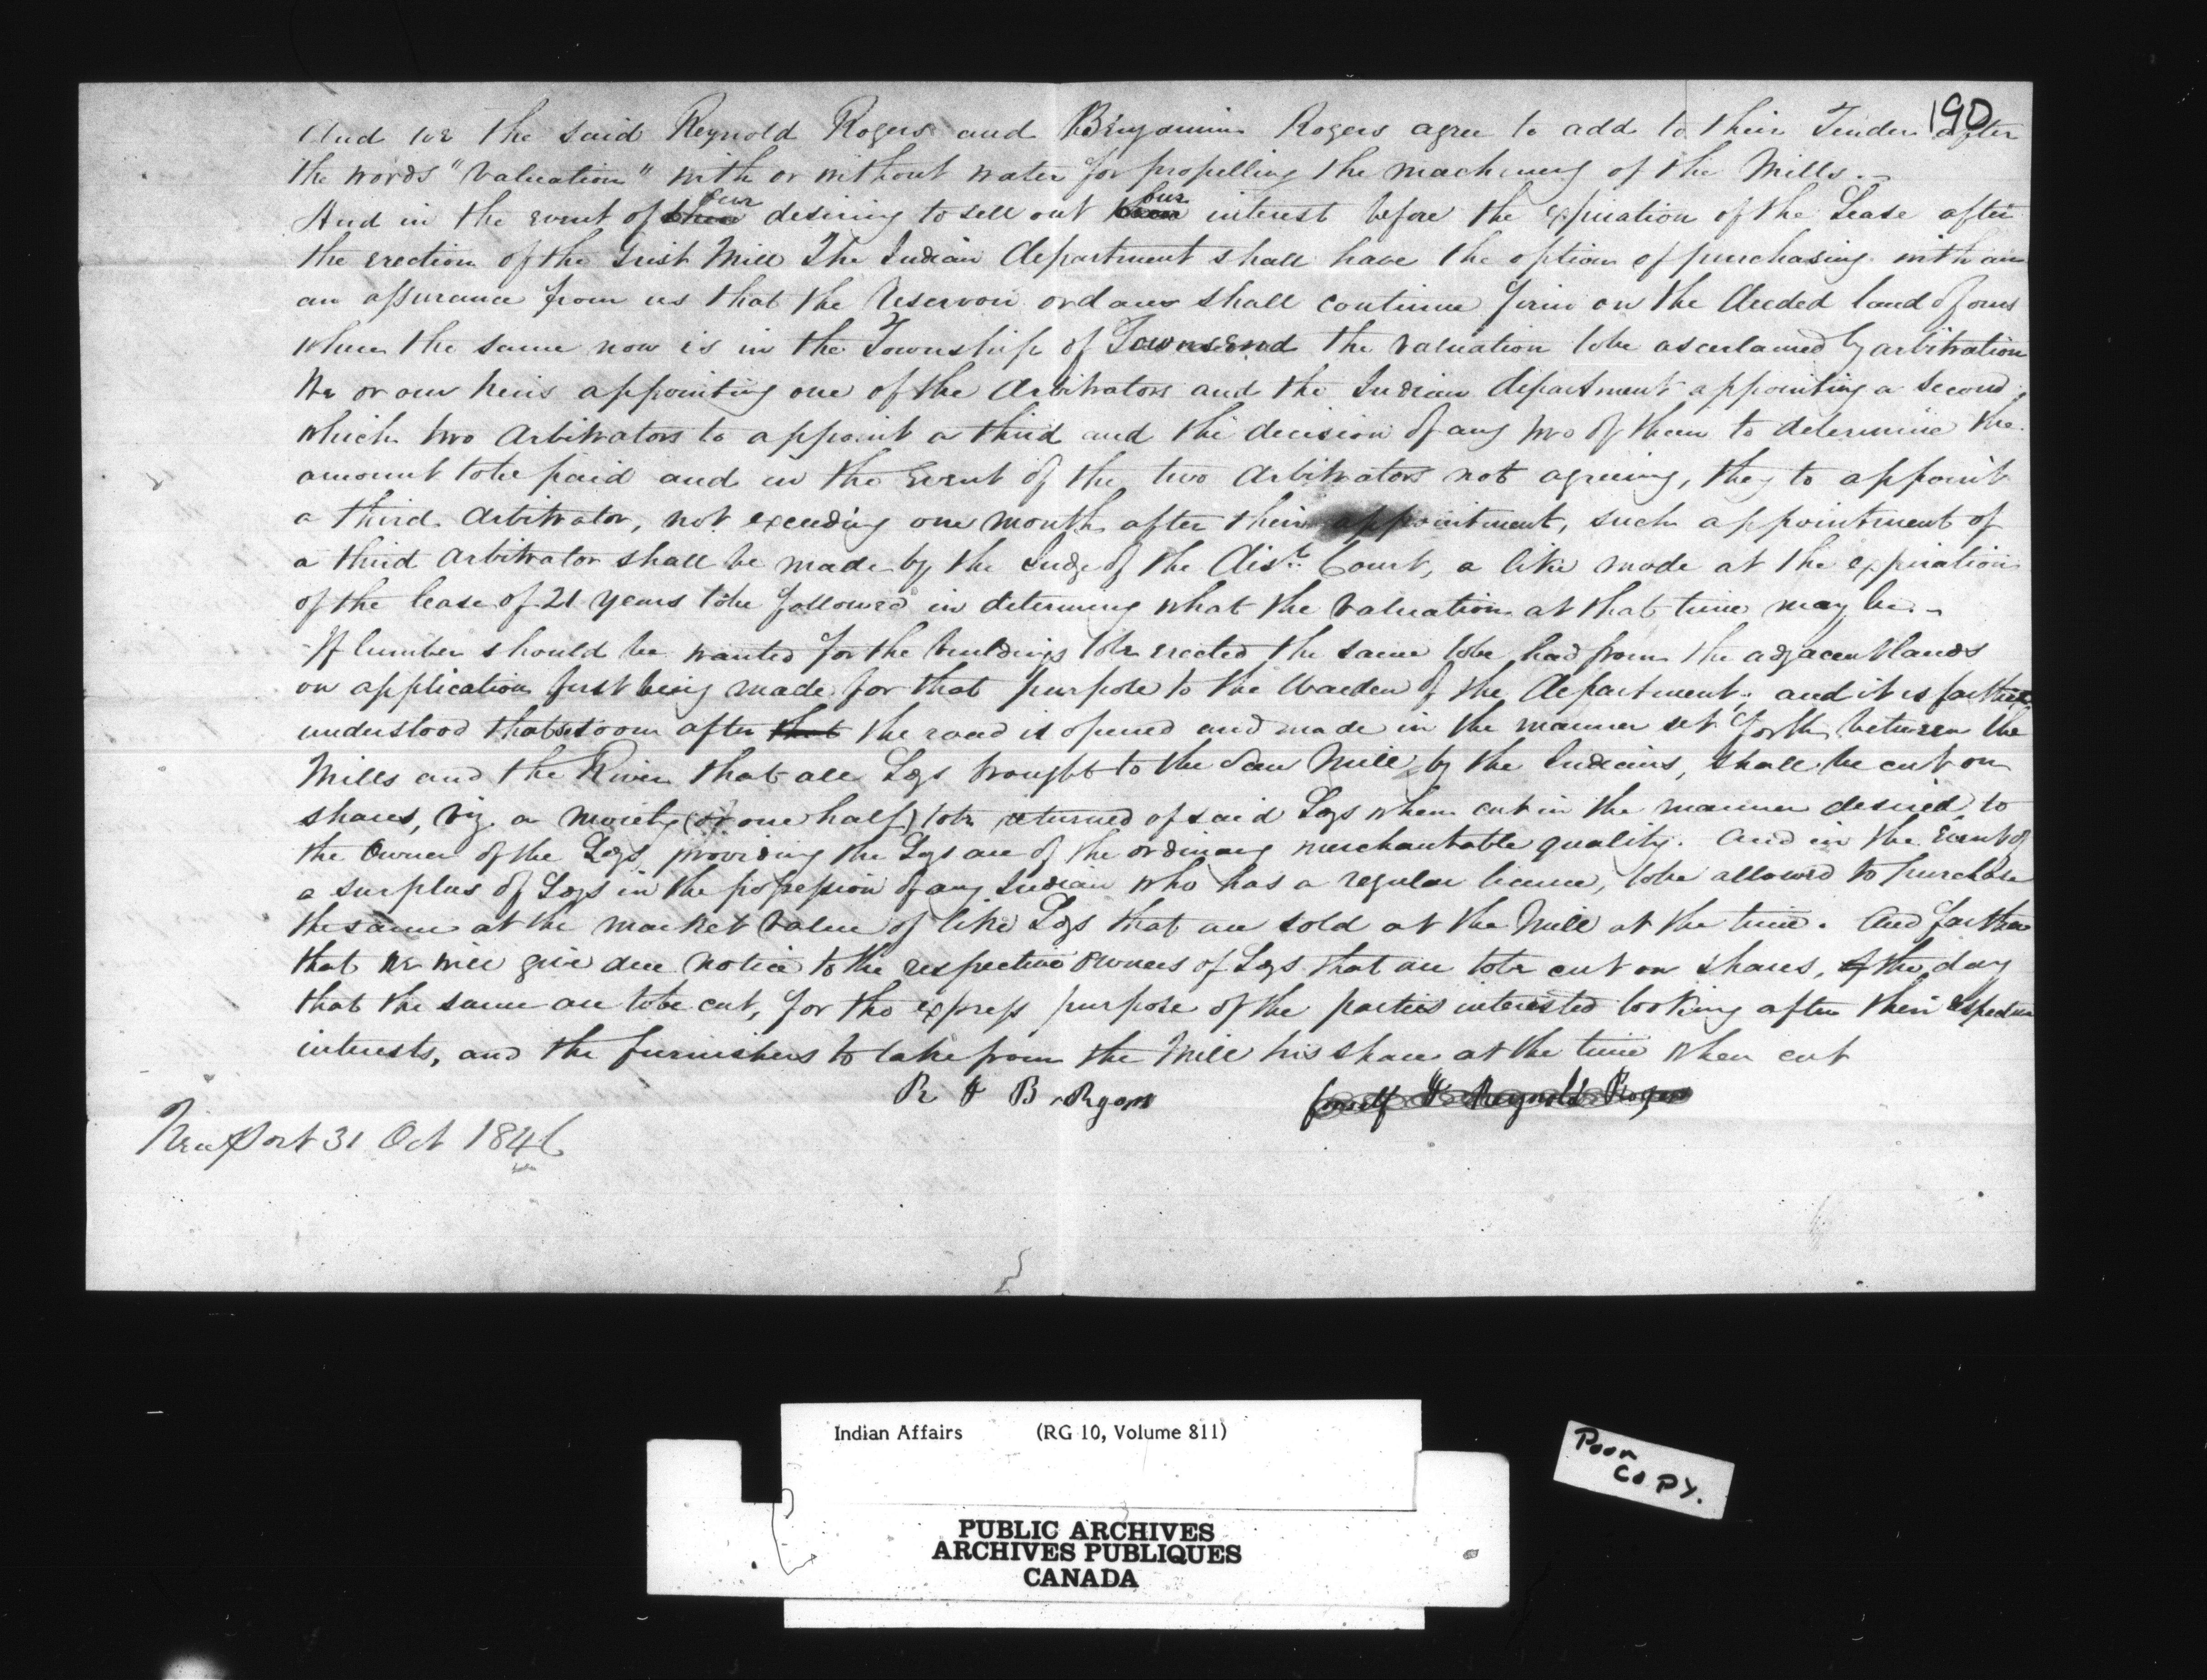 190
And we the said Reynold Rogers and Benjamin Rogers agree to add to their Tender after
the words "Valuation" with or without water for propelling the machinery of the Mills.-
And in the event of our desiring to sell out our interest before the expiration of the Lease after
the erection of the Grist Mill The Indian department shall have the option of purchasing with an
an assurance from us that the Reservoir or dam shall continue firm on the deeded land of ours
where the same now is in the Township of Townsend the valuation to be ascertained by arbitration
We or our heirs appointing one of the Arbitrators and the Indian department appointing a second,
which two Arbitrators to appoint a third and the decision of any two of them to determine the
amount to be paid and in the Event of the two Arbitrators not agreeing, they to appoint
a third Arbitrator, not exceeding one month after their appointment, such appointment of
a third Arbitrator shall be made by the Judge of the Dist. Court, a like mode at the expiration
of the lease of 21 years to be followed in determing what the valuation at that time may be.-
If lumber should be wanted for the buildings to be erected the same to be had from the adjacent lands
on application first being made for that purpose to the Warden of the department; and it is farther
understood that so soon after that the road is opened and made in the manner set forth between the
Mills and the River that all Logs brought to the Saw Mill by the Indians, shall be cut on
shares, viz. a moiety (or one half) to be returned of said Logs when cut in the manner desired to
the Owner of the Logs, providing the Logs are of the ordinary merchantable quality. And in the Event of
a surplus of Logs in the possession of any Indian who has a regular licence, to be allowed to purchase
the same at the market value of like Logs that are sold at the Mill at the time. And farther
that we will give due notice to the respective Owners of Logs that are to be cut on shares, of the day
that the same are to be cut, for the express purpose of the parties interested looking after their respective
interests, and the furnishers to take from the Mill his share at the time when cut
R & B Rogers Reynold Rogers
Newport 31 Oct 1846
Indian Affairs (RG 10, Volume 811)
Poor
COPY.
PUBLIC ARCHIVES
ARCHIVES PUBLIQUES
CANADA